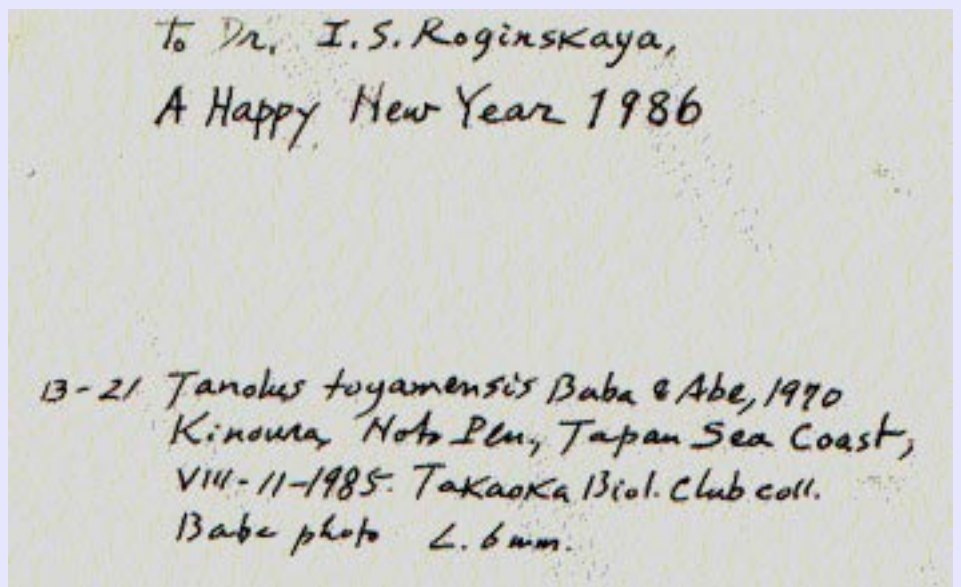 To Dr. I.S. Roginskaya,
A Happy New Year 1986
B-21 Janolus toyamensis Baba & Abe, 1970
Kinoura, Noto Pen., Japan Sea Coast,
VIII-11-1985. Takaoka Biol. Club coll.
Baba photo L. 6 mm.